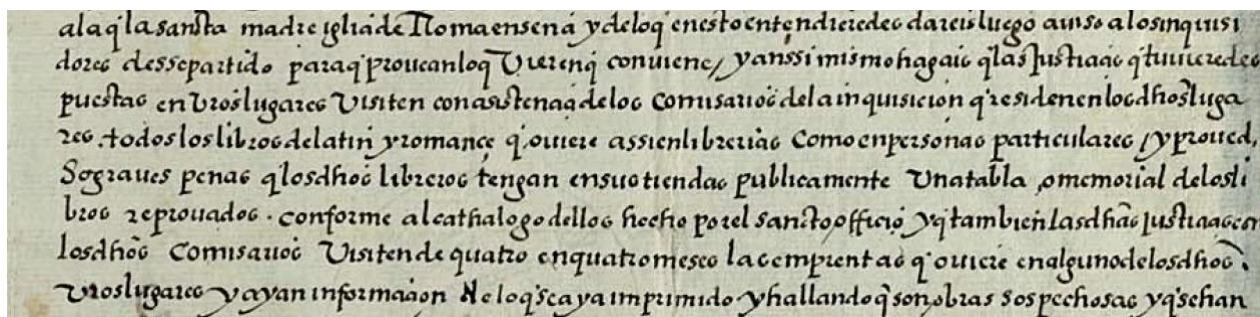 ala q̄ la sancta madre iglia de Roma ensena y delo q̄ en esto entendieredes dareis luego auiso a los inquisi
dores desse partido para q̄ prouean lo q̄ vieren q̄ conuiene / y anssi mismo hagais q̄ las justicias q̄ tuuieredes
puestas en vr̄os lugares visiten con asistencia de los comisarios de la inquisicion q̄ residen en los dhos luga
res . todos los libros de latin y romance q̄ ouiere assi en librerias como en personas particulares / y proueed,
so graues penas q̄ los dhos libreros tengan en sus tiendas publicamente vna tabla , o memorial de los li
bros reprouados . conforme al cathalogo dellos hecho por el sancto officio y q̄ tambien las dhas justicias con
los dhos comisarios visiten de quatro en quatro meses las emprentas q̄ ouiere en alguno de los dhos
vr̄os lugares y ayan informacion de lo q̄ se aya imprimido y hallando q̄ son obras sospechosas y q̄ se han